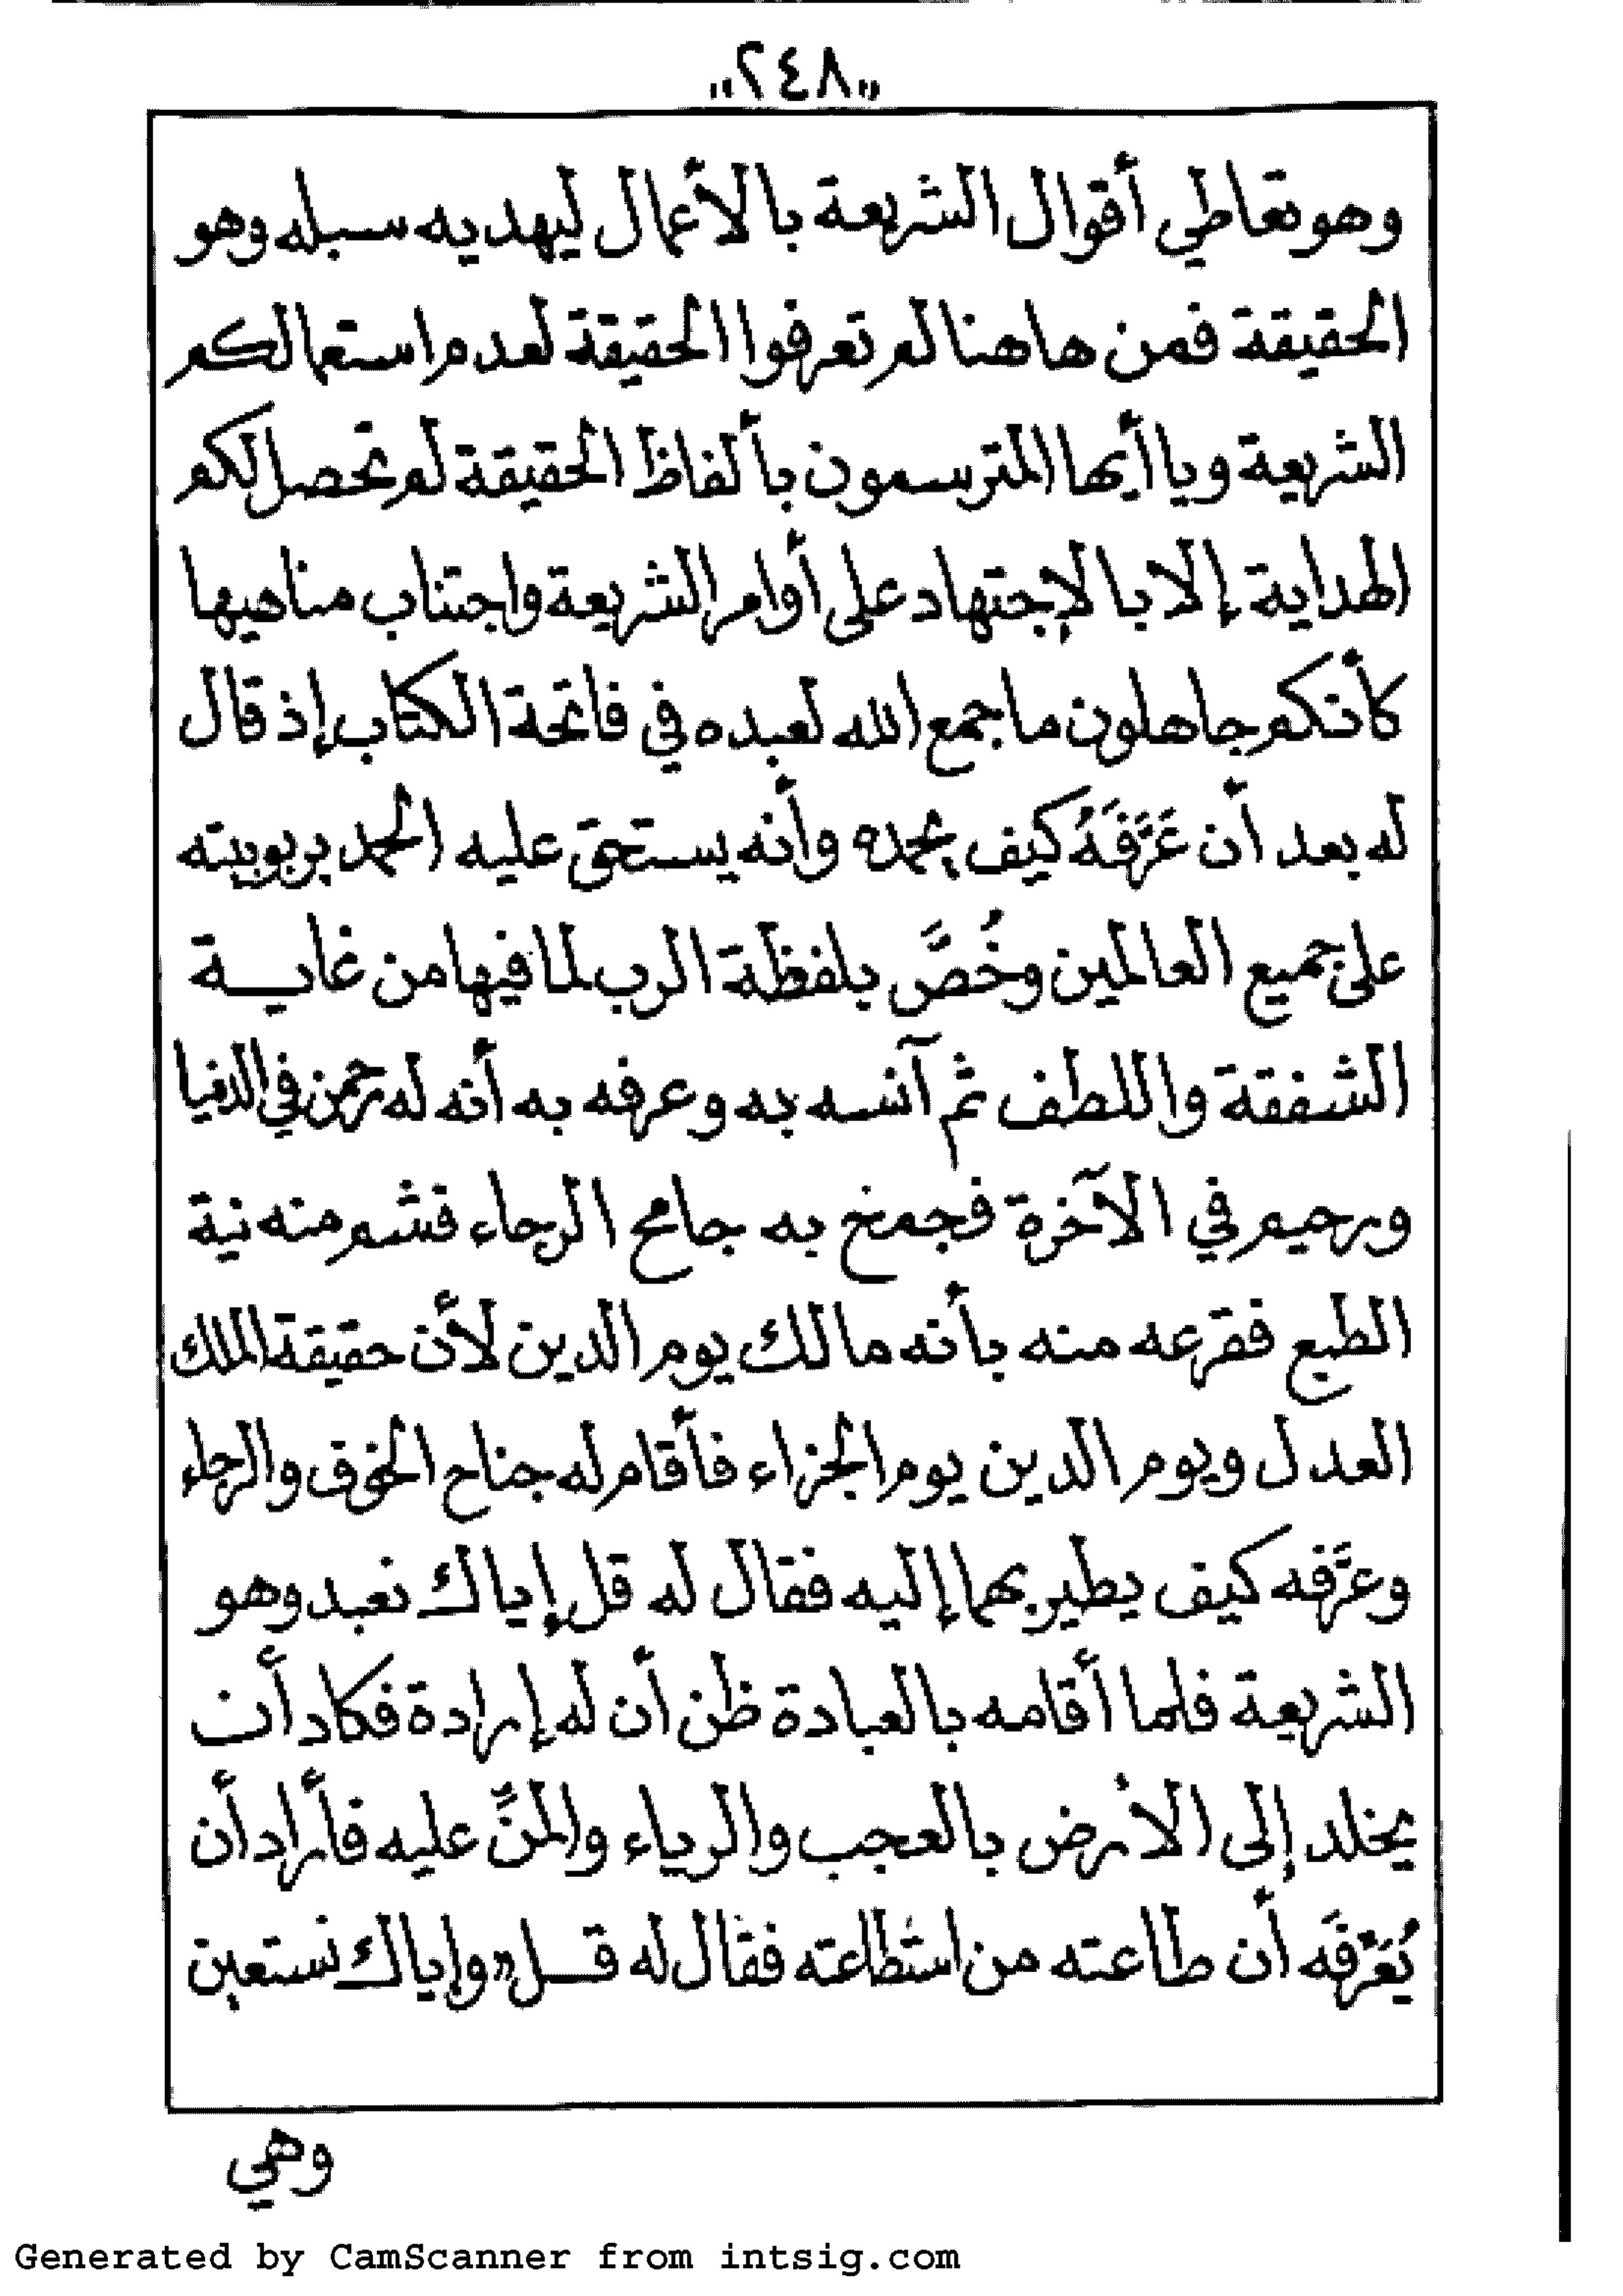 "٢٤٨"
وهو تعاطي أقوال الشريعة بالأعمال ليهديه سبله وهو
الحقيقة فمن هاهنا لم تعرفوا الحقيقة لعدم استعمالكم
الشريعة ويا أيها المترسمون بألفاظ الحقيقة لم تحصل لكم
الهداية إلا بالإجتهاد على أوامر الشريعة واجتناب مناهيها
كأنكم جاهلون ما جمع الله لعبده في فاتحة الكتاب إذ قال
له بعد أن عَرَّفَهُ كيف يحمده وأنه يستحق عليه الحمد بربوبيته
على جميع العالمين وخُصَّ بلفظة الرب لما فيها من غاية
الشفقة واللطف ثم آنسه به وعرفه به أنه له رحمن في الدنيا
ورحيم في الآخرة فجمخ به جامح الرجاء فشم منه نية
الطبع فقرعه منه بأنه مالك يوم الدين لأن حقيقة الملك
العدل ويوم الدين يوم الجزاء فأقام له جناح الخوف والرجاء
وعرَّفه كيف يطير بهما إليه فقال له قل إياك نعبد وهو
الشريعة فلما أقامه بالعبادة ظن أن له إرادة فكاد أن
يخلد إلى الأرض بالعجب والرياء والمنِّ عليه فأراد أن
يُعَرِّفَه أن طاعته من استطاعته فقال له قل «وإياك نستعين
وهي
Generated by CamScanner from intsig.com